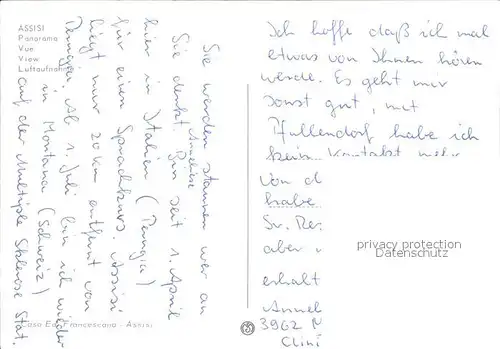 ASSISI
Panorama
Vue
View
Luftaufnahme
Sie werden staunen wer an
Sie denkt. Bin seit 1. April
Anneliese
hier in Italien (Perugia)
für einen Sprachkurs. Assisi
liegt nur 20 km entfernt von
Perugia. Ab 1. Juli bin ich wieder
in Montana (Schweiz)
auf der Multiple Sklerose Stat.
Casa Ed. Francescana - Assisi
Ich hoffe daß ich mal
etwas von Ihnen hören
werde. Es geht mir
sonst gut, mit
Pfullendorf habe ich
kein Kontakt mehr
von d
habe
Sr.
aber
privacy protection
Datenschutz
erhalt
Annel
3962 M
Clini